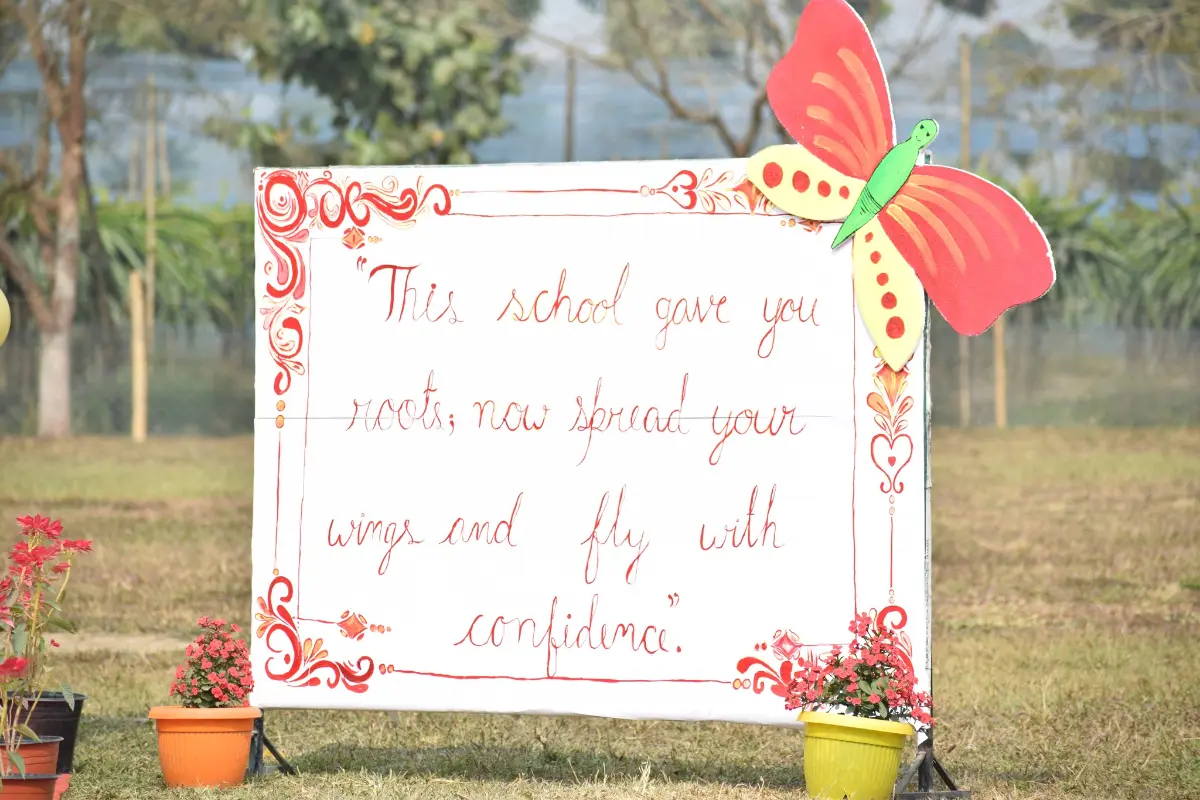 "This school gave you
roots; now spread your
wings and fly with
confidence."